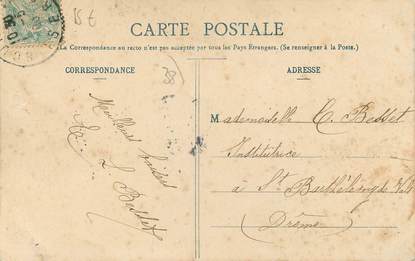 15 €
CARTE POSTALE
(La Correspondance au recto n'est pas acceptée par tous les Pays Étrangers. (Se renseigner à la Poste.)
CORRESPONDANCE
ADRESSE
38
Meilleurs baisers
L. Besset
Mademoiselle C. Besset
Institutrice
à St Barthélemy de Vals
Drôme